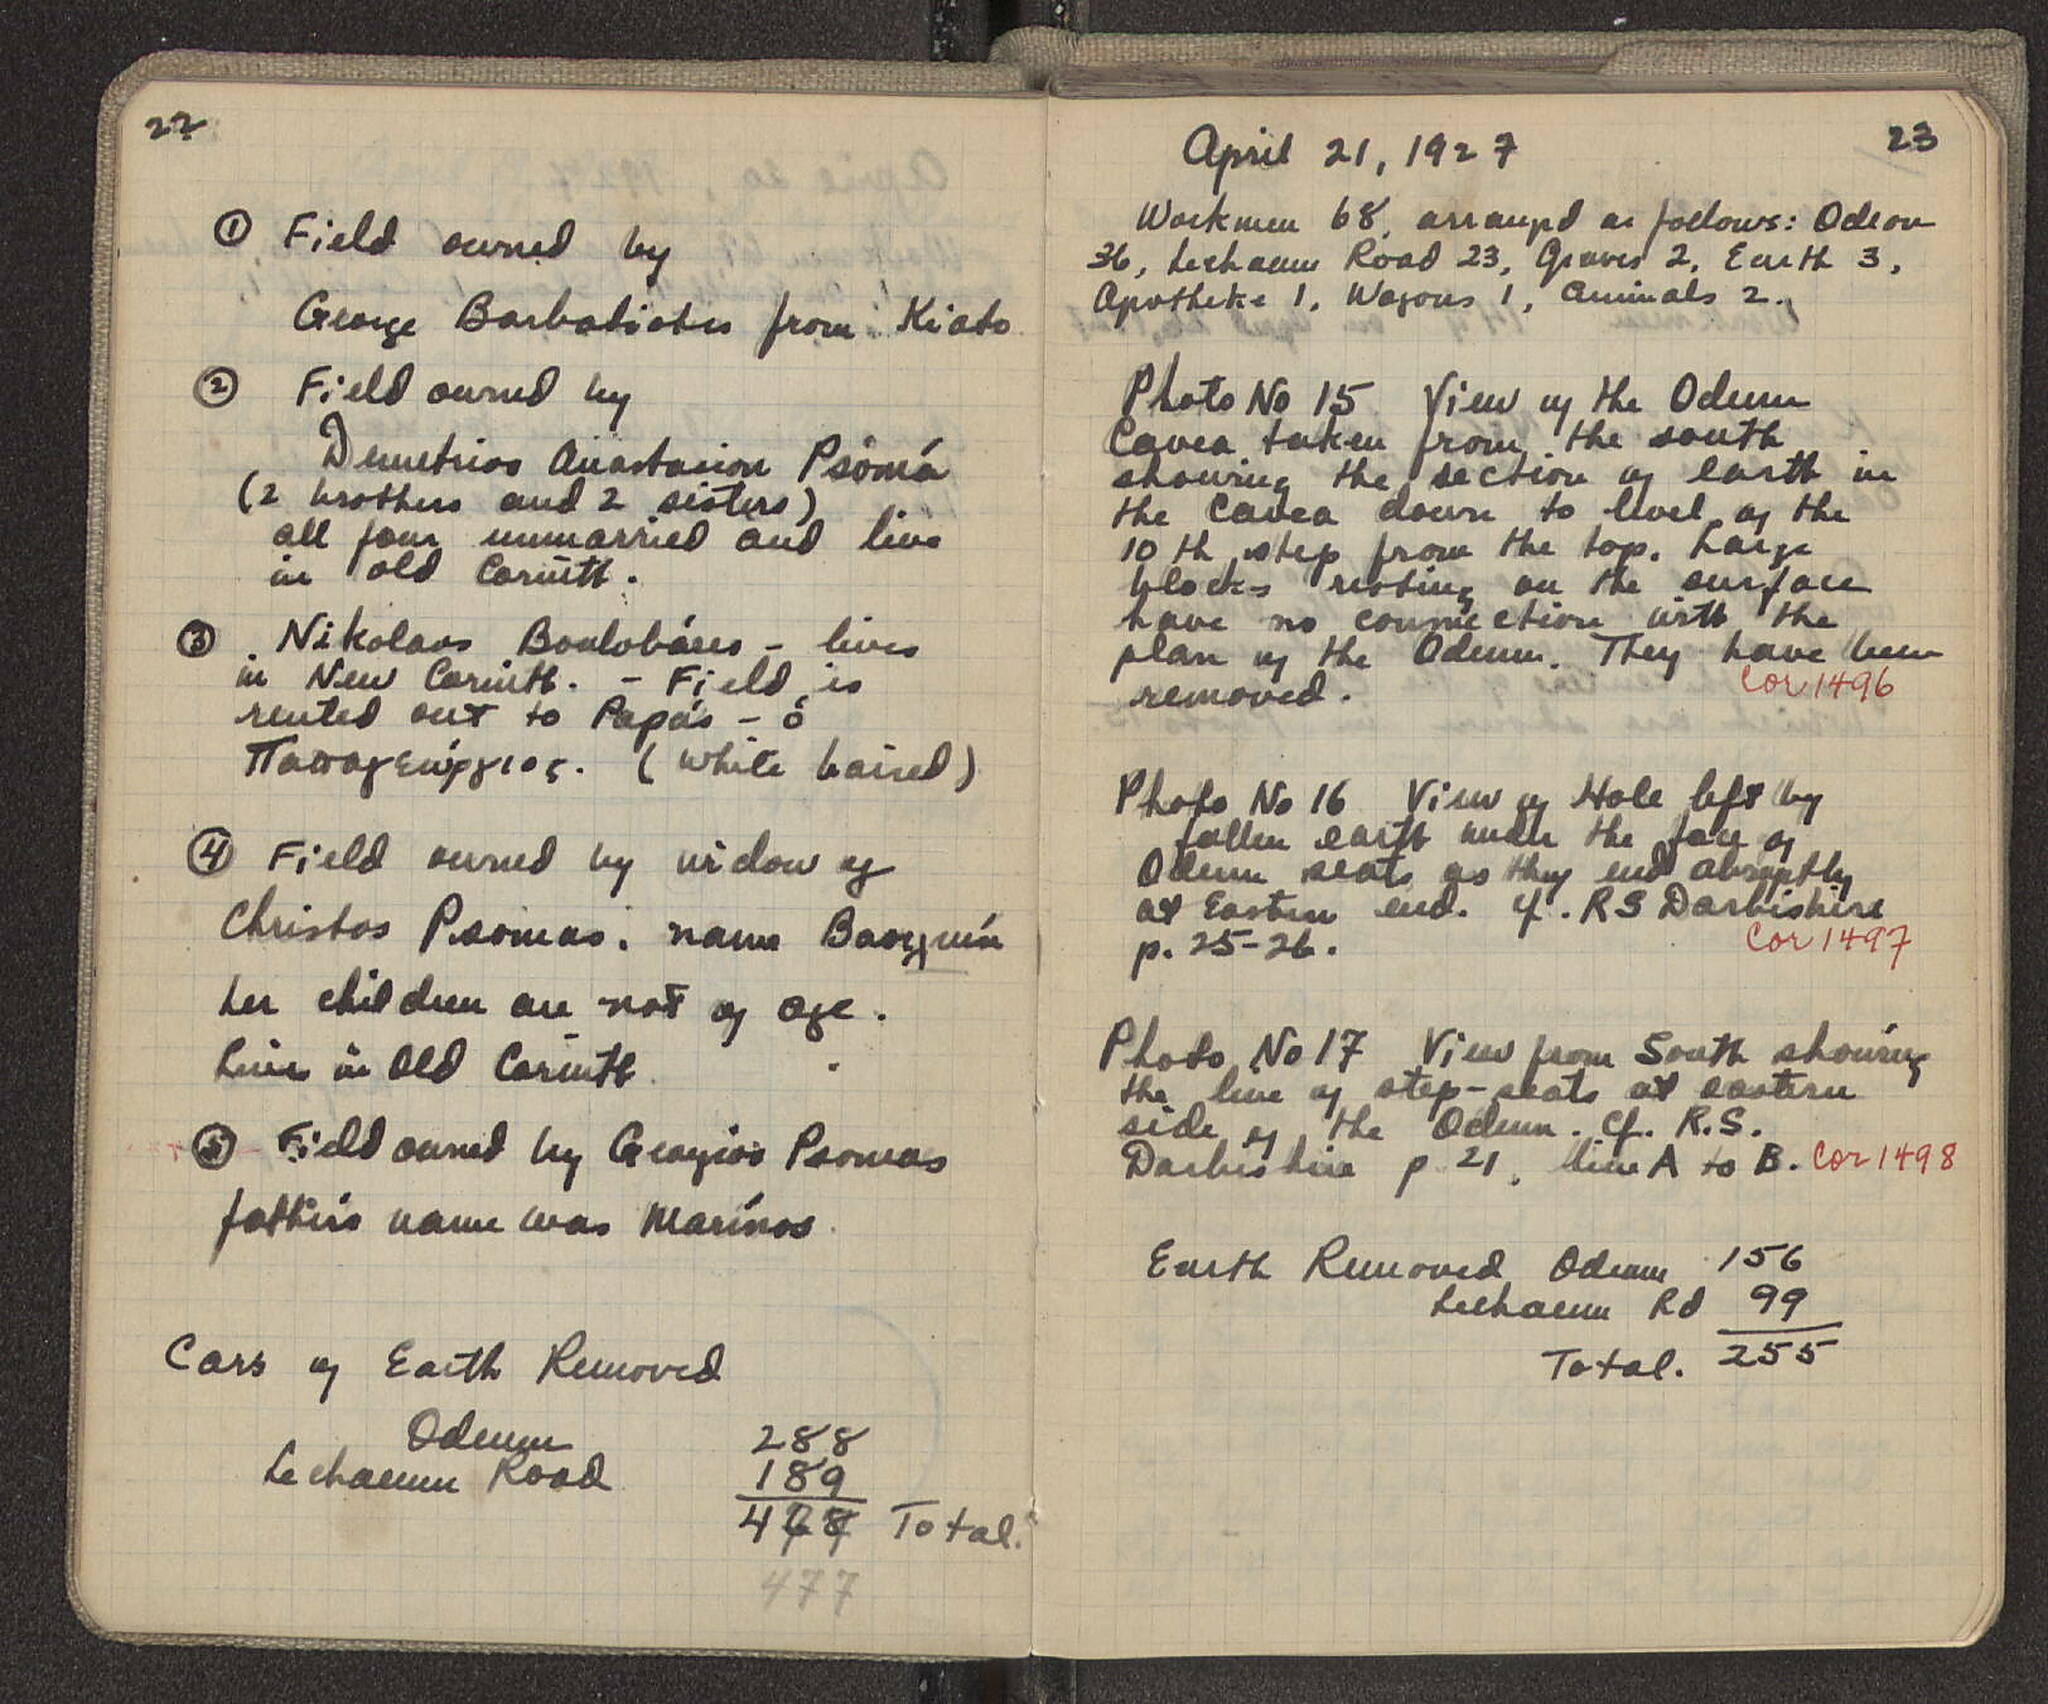 22
① Field owned by
George Barbaliotis from Kiato
② Field owned by
Demetrios Anastasion Psomá
(2 brothers and 2 sisters)
all four unmarried and live
in old Corinth.
③ Nikolaos Boulobáses - lives
in New Corinth. - Field is
rented out to Papás - ὁ
Παπαγεώργιος. (white haired)
④ Field owned by widow of
Christos Psomas. name
her children are not of age.
Lives in Old Corinth
⑤ Field owned by Georgios Psomas
father's name was Marínos
Cars of Earth Removed
Odeum 288
Lechaeum Road 189
Total.
477
23
April 21, 1927
Workmen 68, arranged as follows: Odeon
36, Lechaeum Road 23, Graves 2, Earth 3,
Apotheke 1, Wagons 1, Animals 2.
Photo No 15 View of the Odeum
Cavea taken from the south
showing the section of earth in
the Cavea down to level of the
10th step from the top. Large
blocks resting on the surface
have no connection with the
plan of the Odeum. They have been
removed. Cor 1496
Photo No 16 View of Hole left by
fallen earth under the face of
Odeum seats as they end abruptly
at Eastern end. cf. RS Darbishire
p. 25-26. Cor 1497
Photo No 17 View from South showing
the line of step-seats at eastern
side of the Odeum. cf. R.S.
Darbishire p 21, line A to B. Cor 1498
Earth Removed Odeum 156
Lechaeum Rd 99
Total. 255